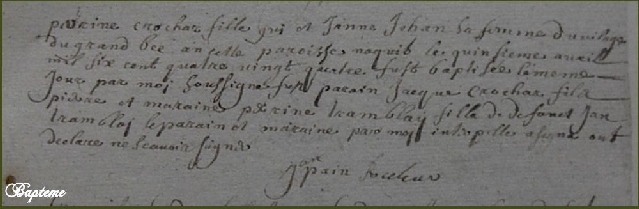 perrine crochar fille qui et Janne Jehan sa femme du vilage
du grand bée an cette paroisse naquit le quinsieme avrill
mil six cent quatre vingt quatre fust baptisée le meme
Jour par moj soussigne fust parain Jacque crochar fils
pierre et maraine perine tramblaÿ filla de defunct Jan
tramblaj le parain et maraine par moj interpelle a signe ont
declare ne scauoir signe
Bapteme